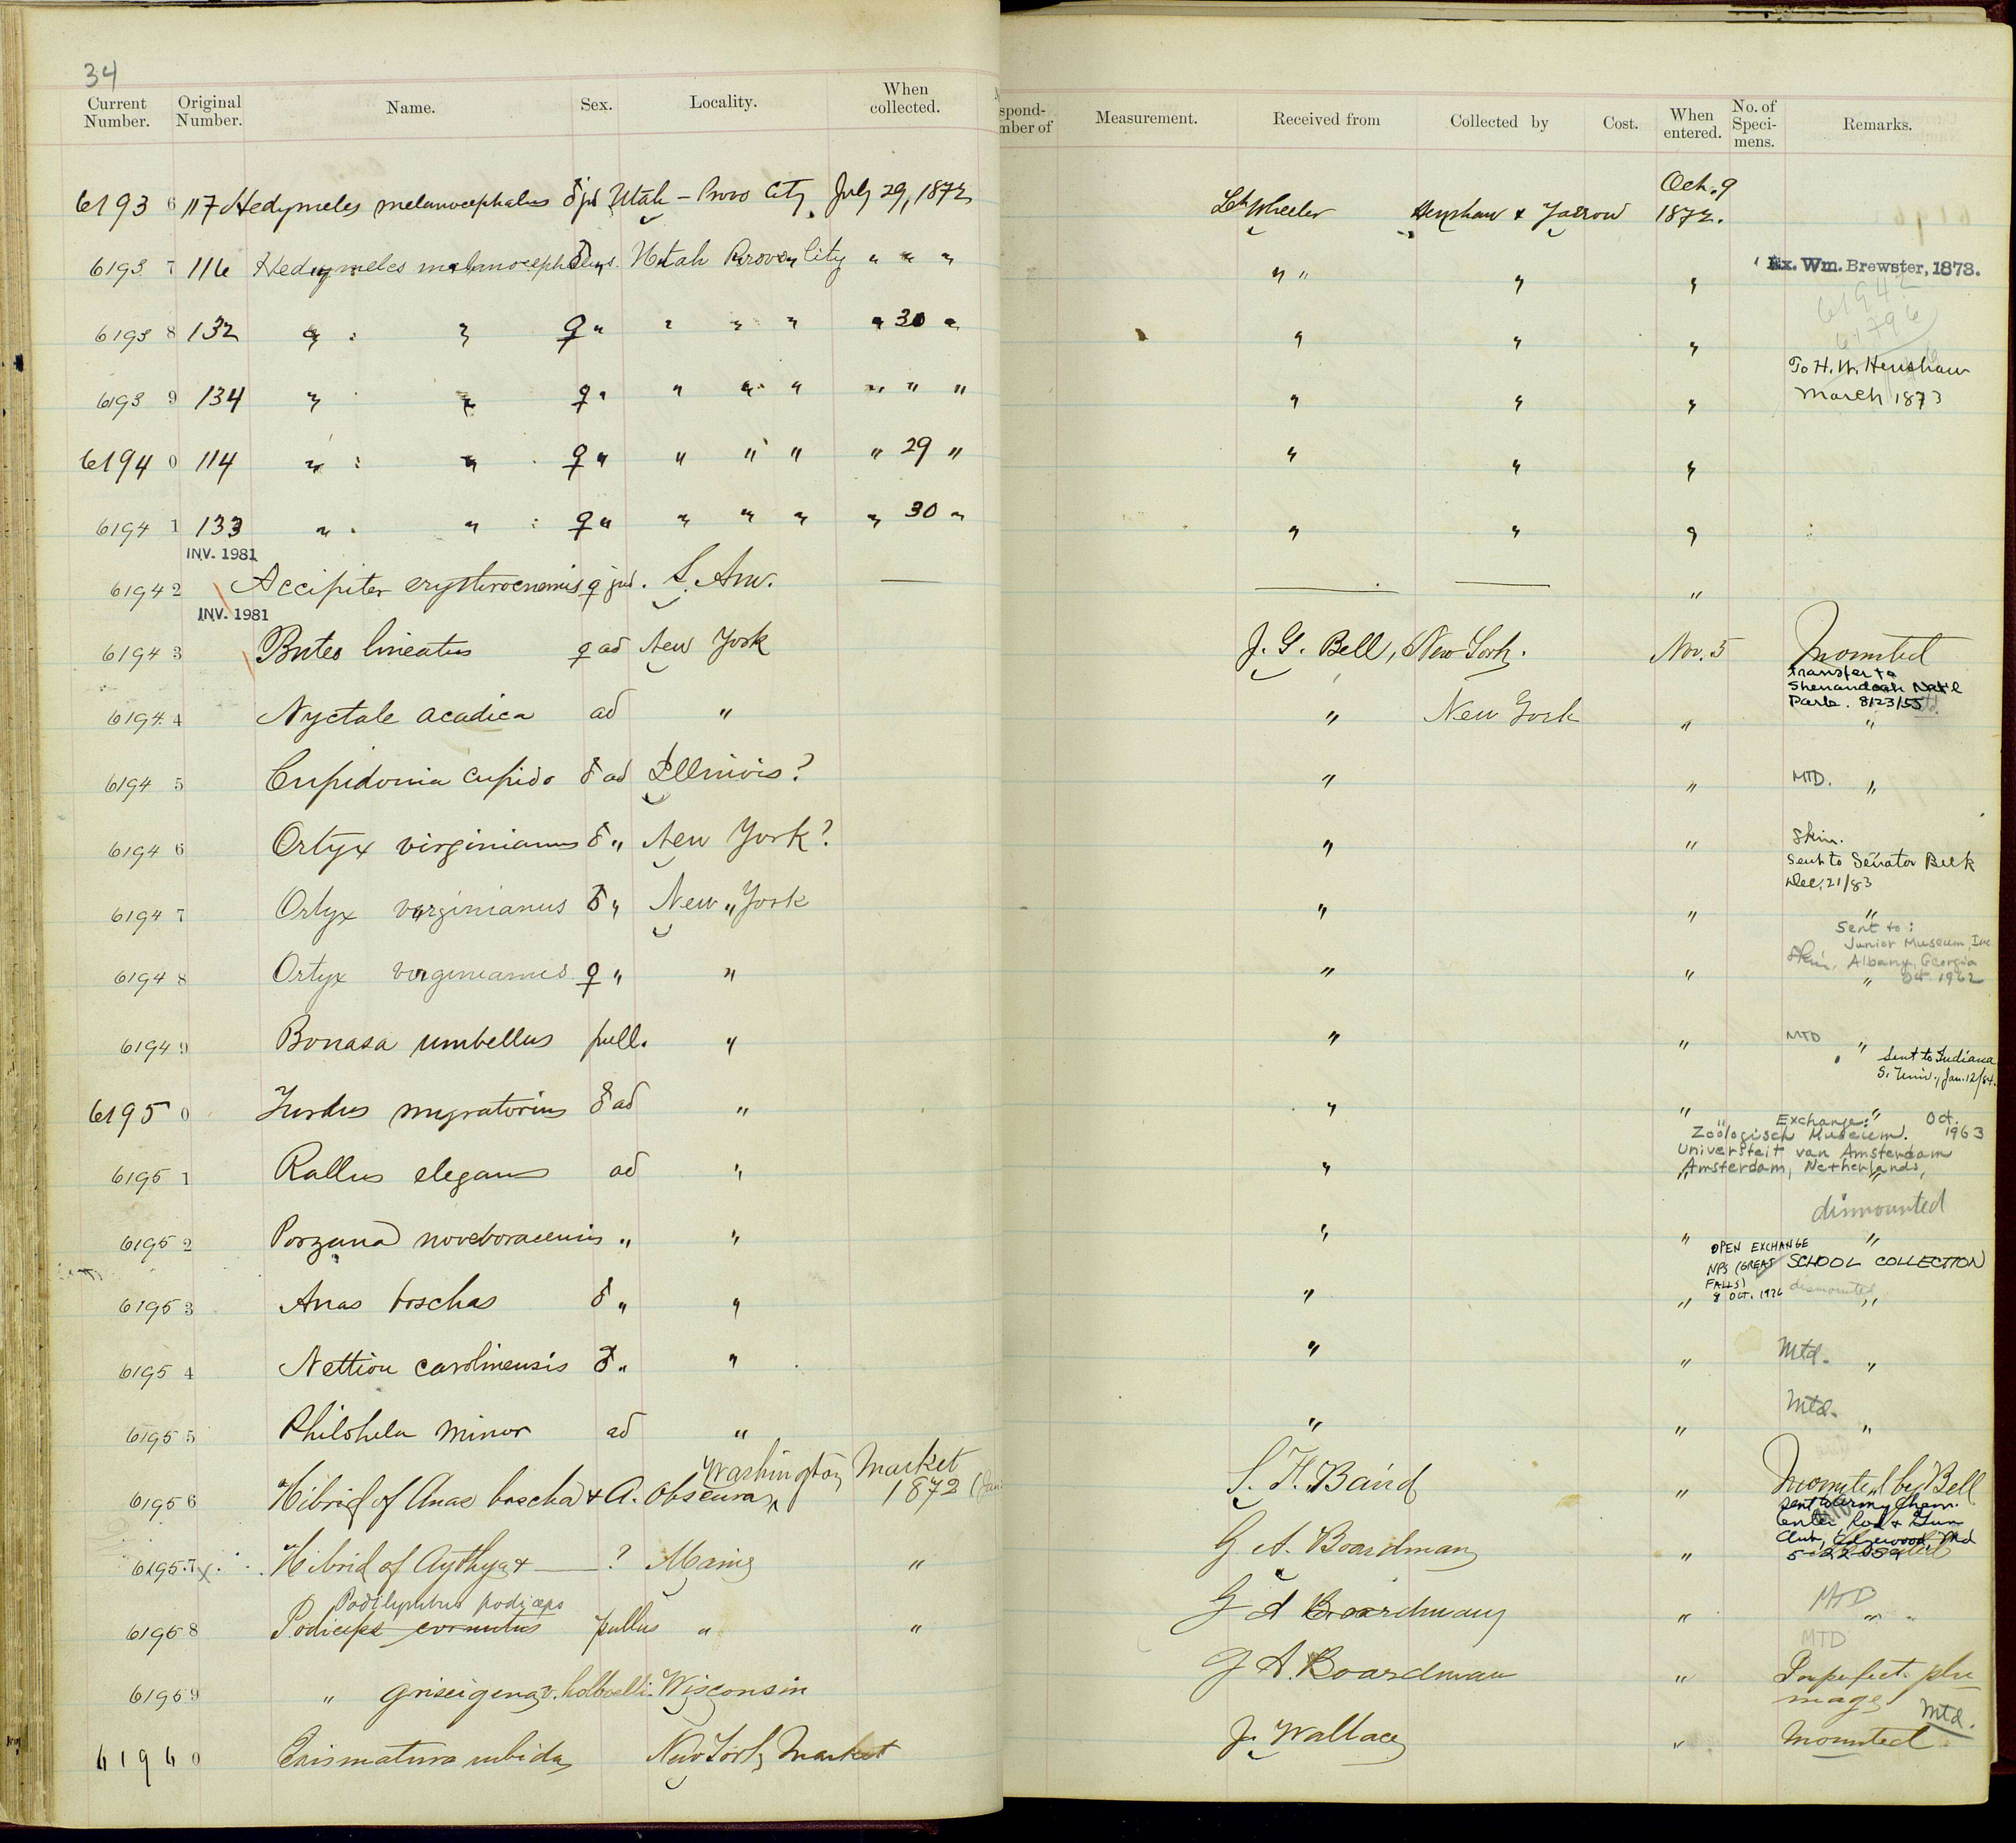 34
Current Number. Original Number. Name. Sex. Locality. When collected. spond- mber of Measurement. Received from Collected by Cost. When entered. No. of Speci- mens. Remarks.
61936 117 Hedymeles melanocephalus ♂ Utah - Provo City July 29, 1872 Lt Wheeler Henshaw & Yarrow Oct. 9 1872.
61937 116 Hedymeles melanocephalus Utah Provo City " " " " " " " Ex. Wm. Brewster, 1873.
61938 132 " " ♀ " " " " " 30 " " " "
61942
61796
To H. W. Henshaw
March 1873
61939 134 " " ♀ " " " " " " " " " "
61940 114 " " ♀ " " " " " 29 " " " "
61941 133 " " ♀ " " " " " 30 " " " "
INV. 1981
61942 Accipiter erythrocnemis ♀ jud. S. Am. — — — "
INV. 1981
61943 Buteo lineatus ♀ ad New York J. G. Bell, New York. Nov. 5 Mounted
Transfer to
Shenandoah Nat'l
Park. 8/23/55
61944 Nyctale acadica ad " " New York " "
61945 Cupidonia cupido ♂ ad Illinois? " " MTD. "
61946 Ortyx virginianus ♂ " New York? " " Skin.
Sent to Senator Beck
Dec. 21/83
61947 Ortyx virginianus ♂ " New York " " "
Sent to:
Junior Museum, Inc
Skin, Albany, Georgia
Oct. 1962
61948 Ortyx virginianus ♀ " " " " "
61949 Bonasa umbellus pull. " " " MTD "
Sent to Indiana
S. Univ., Jan. 12/84.
61950 Turdus migratorius ♂ ad " " " "
Exchange: Oct. 1963
Zoölogisch Museum.
Universteit van Amsterdam
Amsterdam, Netherlands,
61951 Rallus elegans ad " " " "
dismounted
61952 Porzana noveboracensis " " " " "
OPEN EXCHANGE
NPS (GREAT FALLS)
8 OCT. 1976
SCHOOL COLLECTION
dismounted
61953 Anas boschas ♂ " " " " "
61954 Nettion carolinensis ♂ " " " " Mtd. "
61955 Philohela minor ad " " " Mtd. "
61956 Hibrid of Anas boscha & A. obscura Washington Market 1872 S. F. Baird " Mounted by Bell
Sent to Army Chem.
Center Rod & Gun
Club, Edgewood, Md
5-22-59
61957 x Hibrid of Aythya & — ? Maine " G. A. Boardman "
Podilymbus podiceps
61958 Podiceps cornutus pullus " " G A Boardman " MTD "
61959 " griseigena v. holboelli. Wisconsin G A. Boardman " MTD Imperfect plumage
61960 Erismatura rubida New York Market J. Wallace " Mounted Mtd.